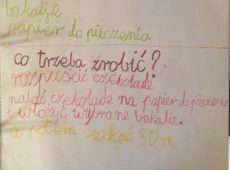 bakalje
papier do pieczenia
co trzeba zrobić?
rozpuścić czekolade
nalać czekolade na papier do pieczenia
i włożyć wybrane bakalie.
a potem czekać 30 m